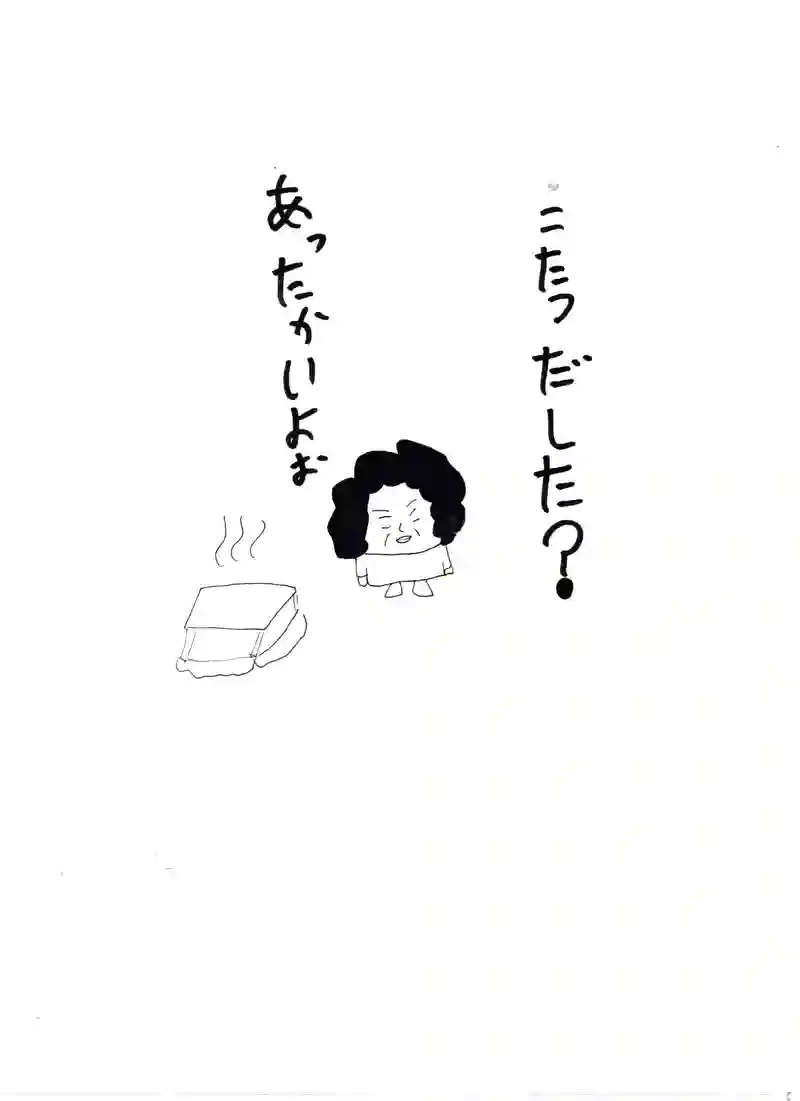 こたつだした？
あったかいよぉ